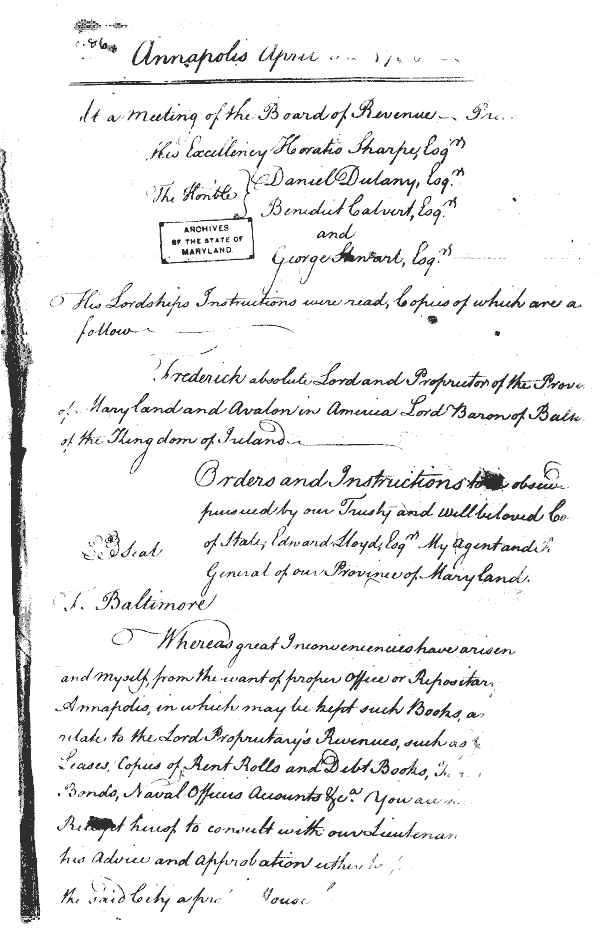 86
Annapolis April
At a Meeting of the Board of Revenue — Pre
His Excellency Horatio Sharpe, Esqrs
The Honble { Daniel Dulany, Esqrs
Benedict Calvert, Esqrs
and
George Stewart, Esqrs
ARCHIVES
OF THE STATE OF
MARYLAND.
His Lordships Instructions were read, Copies of which are a
follow
Frederick absolute Lord and Proprietor of the Prov
of Maryland and Avalon in America Lord Baron of Balt
of the Kingdom of Ireland
Orders and Instructions to be observ
pursued by our Trusty and wellbeloved Co
seal of State, Edward Lloyd, Esqrs My Agent and
General of our Province of Maryland.
F. Baltimore
Whereas great Inconveniencies have arisen
and myself, from the want of proper Office or Repositar
Annapolis, in which may be kept such Books, a
relate to the Lord Proprietary's Revenues, such as
Leases, Copies of Rent Rolls and Debt Books,
Bonds, Naval Officers Accounts &ca. You are
hereof to consult with our Lieutenan
his Advice and Approbation either
the said City a house